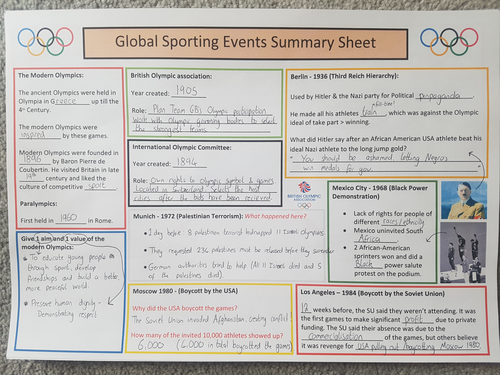 Global Sporting Events Summary Sheet
The Modern Olympics:
The ancient Olympics were held in
Olympia in Greece up till the
4th Century.
The modern Olympics were
inspired by these games.
Modern Olympics were founded in
1896 by Baron Pierre de
Coubertin. He visited Britain in late
19th century and liked the
culture of competitive sport.
Paralympics:
First held in 1960 in Rome.
Give 1 aim and 1 value of the
modern Olympics:
To educate young people
through sport, develop
friendships and build a better
more peaceful world.
Preserve human dignity -
Demonstrating respect
British Olympic association:
Year created: 1905
Role: Plan Team GB's Olympic participation
work with Olympic governing bodies to select
the strongest teams.
International Olympic Committee:
Year created: 1894
Role: Own rights to Olympic symbol & games
Located in Switzerland Selects the host
cities after the bids have been reviewed.
BRITISH OLYMPIC
Munich - 1972 (Palestinian Terrorism): What happened here?
1 day before 8 palestinian terrorist kidnapped 11 Olympians.
They requested 234 palestinians must be released before they surrender
German authorities tried to help. (All 11 died and 5
of the palestinians died).
Moscow 1980 - (Boycott by the USA)
Why did the USA boycott the games?
The Soviet Union invaded Afghanistan, creating conflict
How many of the invited 10,000 athletes showed up?
6,000 (4,000 in total boycotted the games)
Berlin - 1936 (Third Reich Hierarchy):
Used by Hitler & the Nazi party for Political propaganda.
full-time!
He made all his athletes train, which was against the Olympic
ideal of take part > winning.
What did Hitler say after an African American USA athlete beat his
ideal Nazi athlete to the long jump gold?
"You should be ashamed, letting Negros
win medals for you."
Mexico City - 1968 (Black Power
Demonstration)
Lack of rights for people of
different races/ethnicity
Mexico uninvited South
Africa
2 African-American
sprinters won and did a
Black power salute
protest on the podium.
Los Angeles – 1984 (Boycott by the Soviet Union)
12 weeks before, the SU said they weren't attending. It was
the first games to make significant profit due to private
funding. The SU said their absence was due to the
commercialisation of the games, but others believe
it was revenge for USA pulling out/boycotting Moscow 1980.